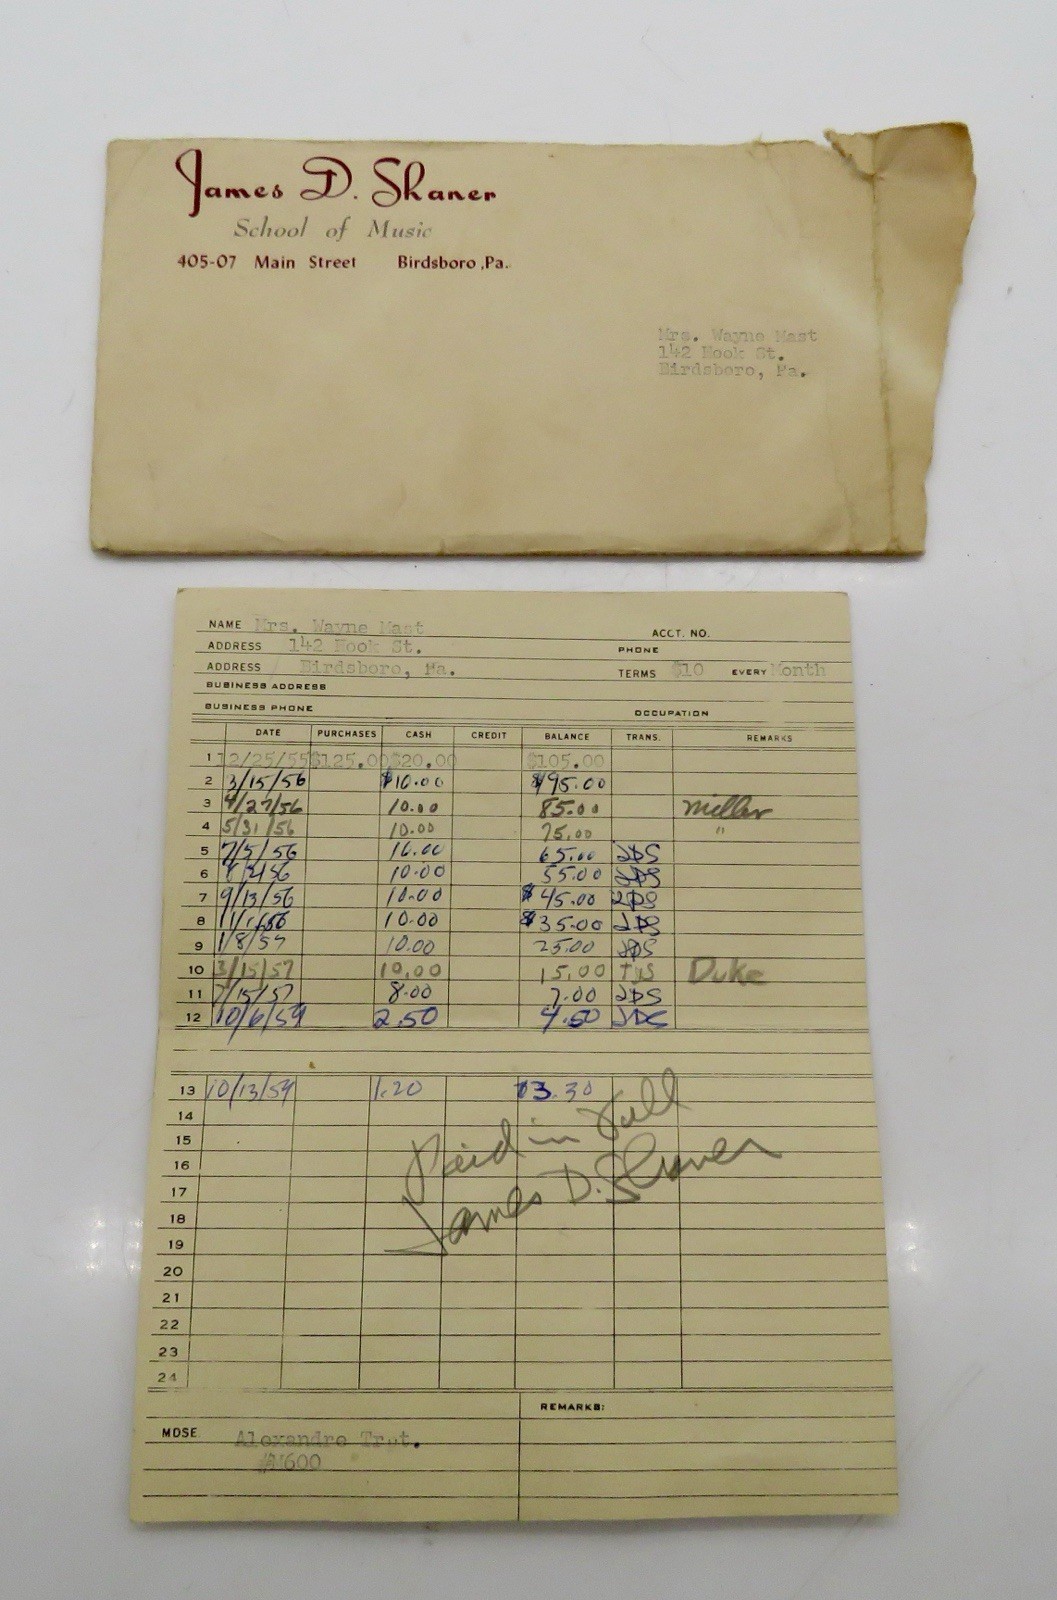 James D. Shaner
School of Music
405-07 Main Street Birdsboro, Pa.
Mrs. Wayne Mast
142 Hook St.
Birdsboro, Pa.
NAME Mrs. Wayne Mast ACCT. NO.
ADDRESS 142 Hook St. PHONE
ADDRESS Birdsboro, Pa. TERMS $10 EVERY Month
BUSINESS ADDRESS
BUSINESS PHONE OCCUPATION
DATE PURCHASES CASH CREDIT BALANCE TRANS. REMARKS
1 12/25/55 $125.00 $20.00 $105.00
2 3/15/56 $10.00 $95.00
3 4/27/56 10.00 85.00 Miller
4 5/31/56 10.00 75.00 "
5 7/5/56 10.00 65.00 JDS
6 8/2/56 10.00 55.00 JDS
7 9/13/56 10.00 $45.00 JDS
8 11/1/56 10.00 $35.00 JDS
9 1/8/57 10.00 25.00 JDS
10 3/15/57 10.00 15.00 JDS Duke
11 7/15/57 8.00 7.00 JDS
12 10/6/59 2.50 4.50 JDS
13 10/13/59 1.20 $3.30
14 Paid in Full
15
16 James D. Shaner
17
18
19
20
21
22
23
24
REMARKS:
MDSE. Alexandre Trpt.
600